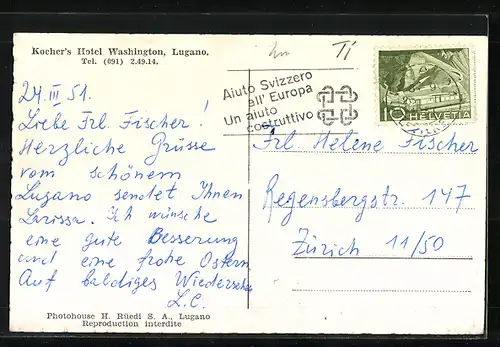 Kocher's Hotel Washington, Lugano.
Tel. (091) 2.49.14.
24. III 51.
Liebe Frl. Fischer!
Herzliche Grüsse
vom schönem
Lugano sendet Ihnen
Larissa. Ich wünsche
eine gute Besserung
und eine frohe Ostern
Auf baldiges Wiedersehen
L.C.
Photohouse H. Rüedi S. A., Lugano
Reproduction interdite
Aiuto Svizzero
all' Europa
Un aiuto
costruttivo
10 HELVETIA
Frl. Helene Fischer
Regensbergstr. 147
Zürich 11/50